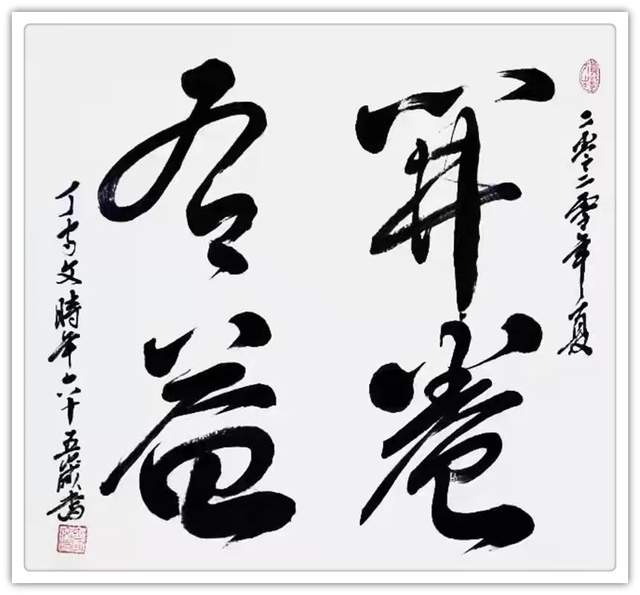 二零二零年夏
開卷
有益
丁守文時年六十五歲書